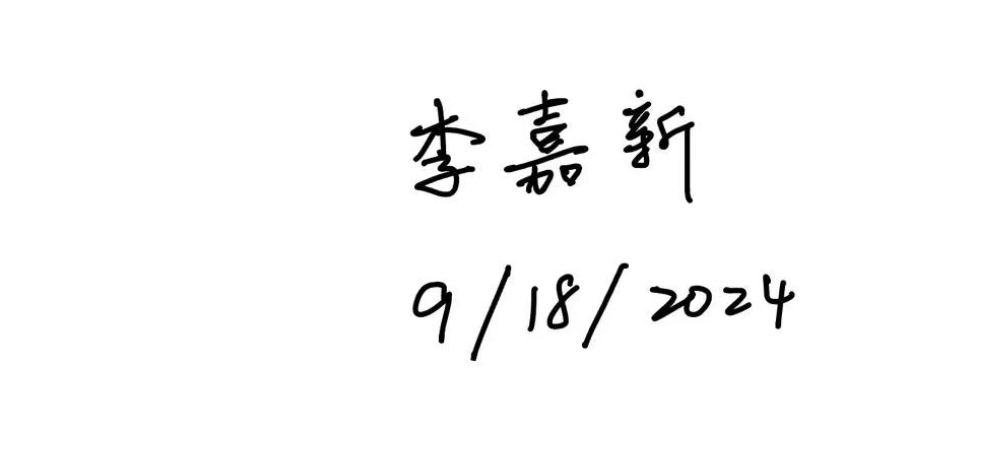 李嘉新
9/18/2024